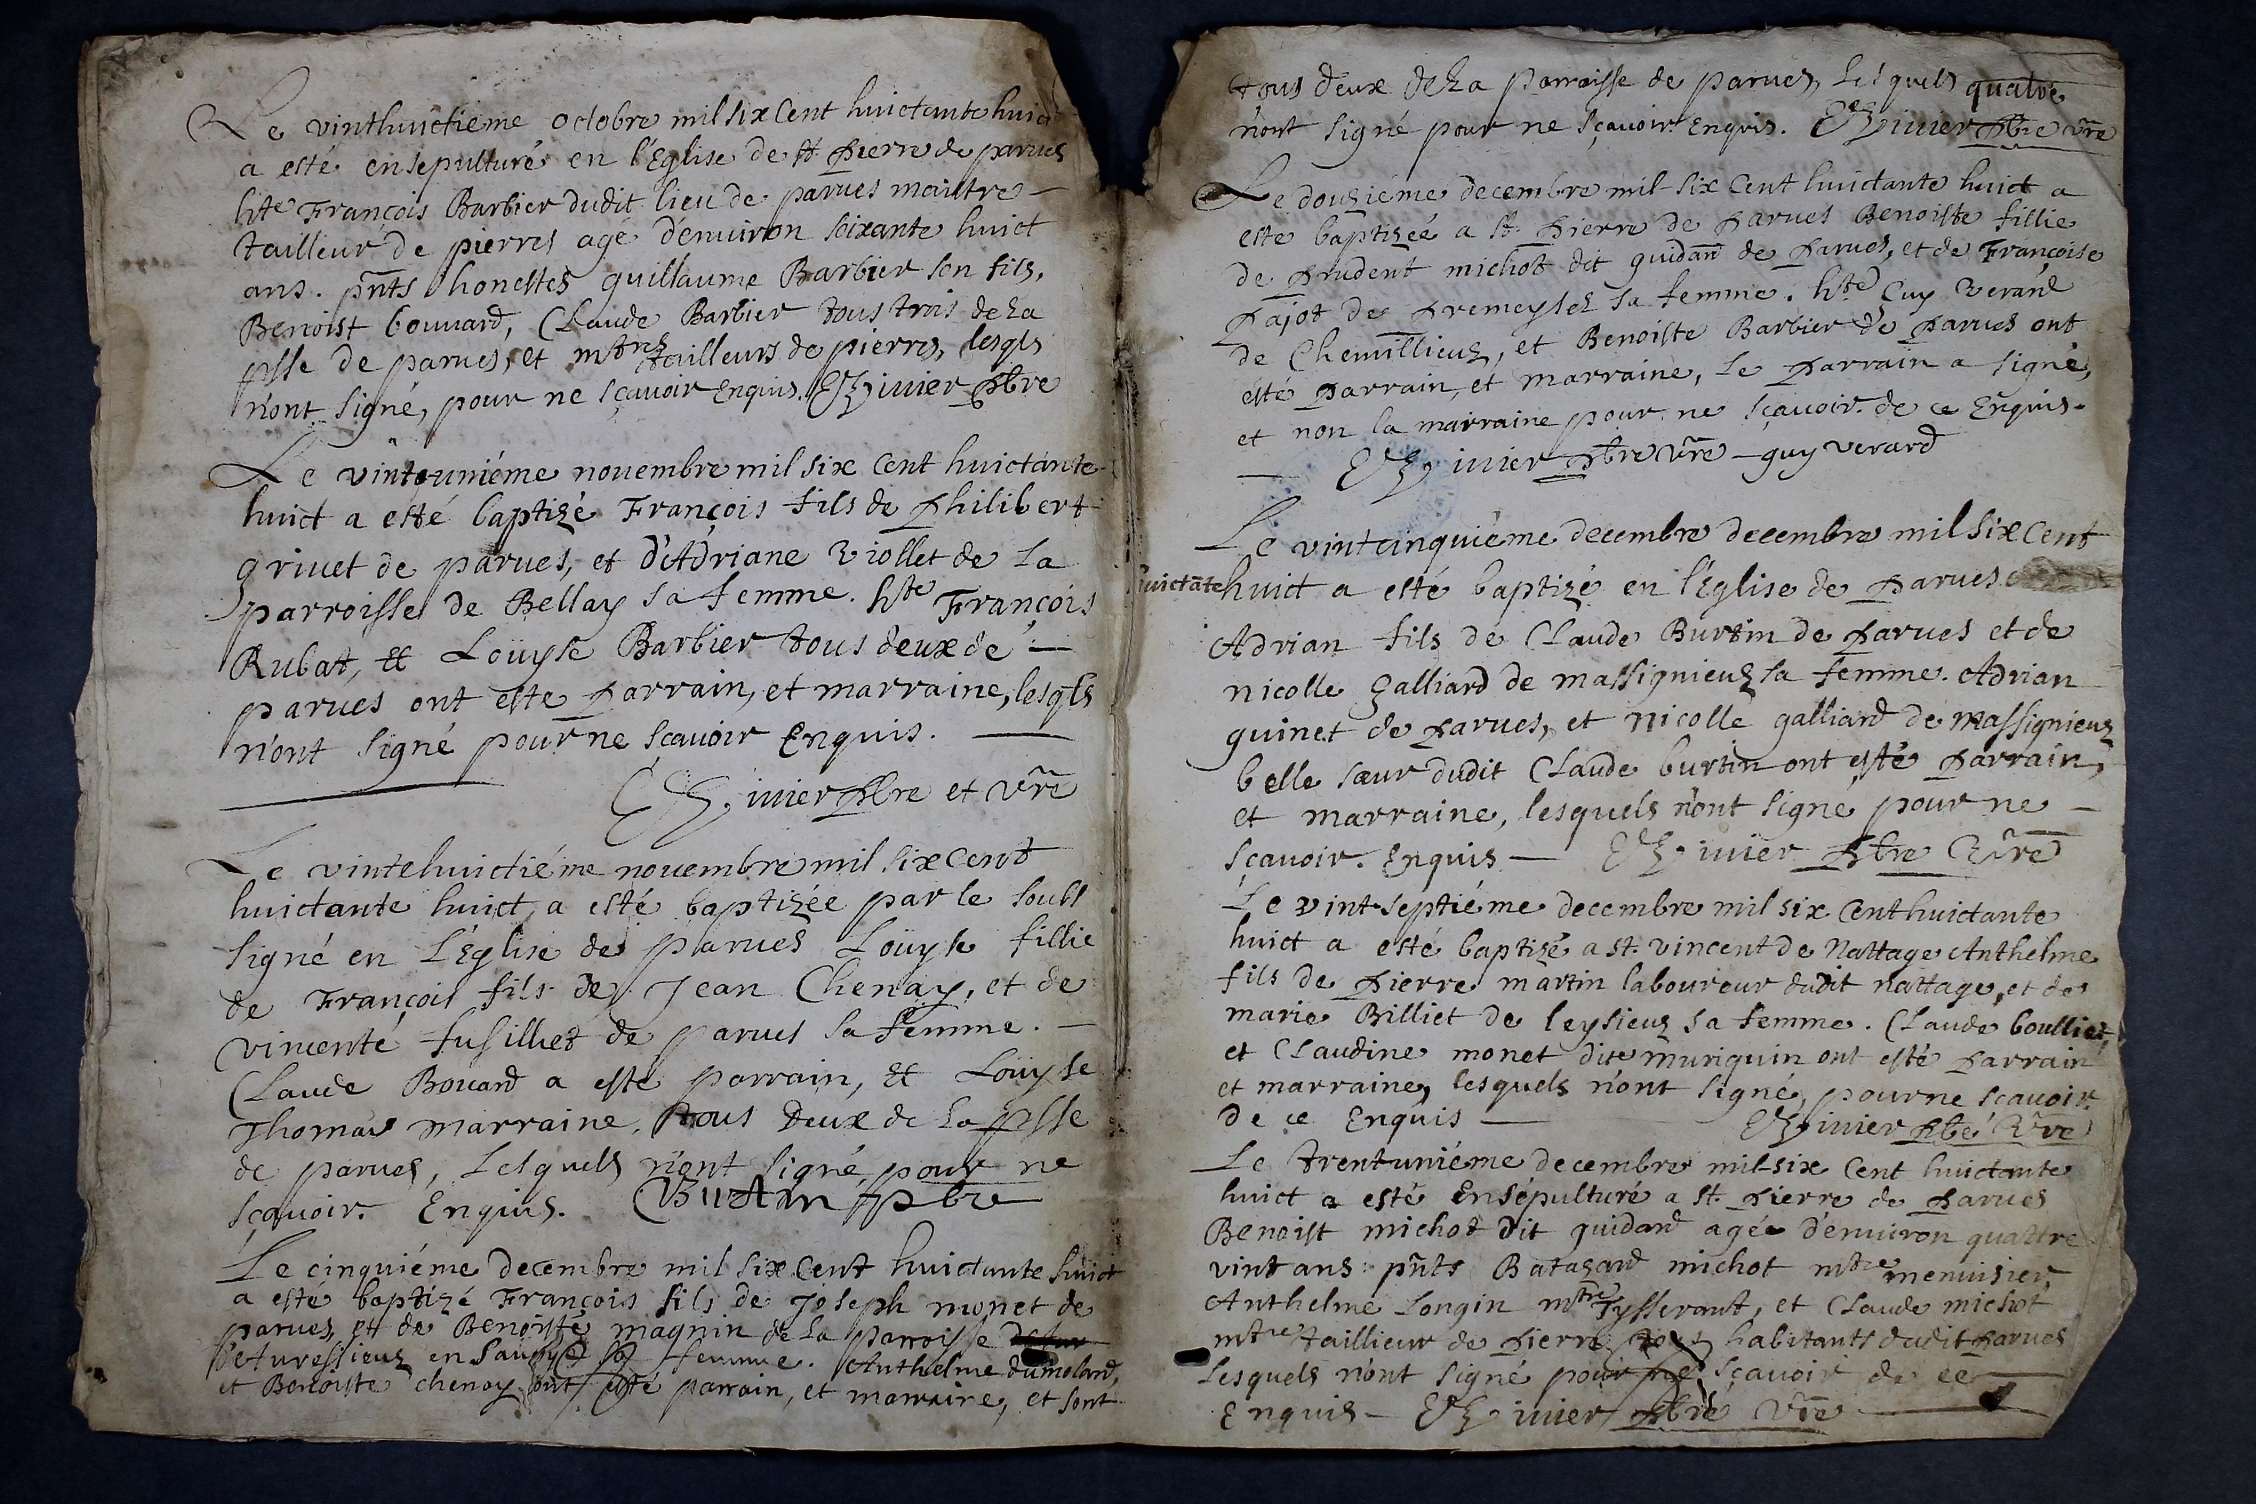 Le vinthuictieme octobre mil six Cent huictante huict
a esté ensepulturé en l'Eglise de st Pierre de parues
hte François Barbier dudit lieu de parues maistre
tailleur de pierres age d'enuiron soixante huict
ans. pnts honestes guillaume Barbier son fils,
Benoist bouuard, Claude Barbier tous trois de La
psse de parues, et mtres tailleurs de pierres, lesqls
n'ont signé, pour ne sçauoir Enquis. iuier pbre
Le vinteuniéme nouembre mil six Cent huictante
huict a esté baptizé François fils de Philibert
griuet de parues, et d'Adriane Viollet de La
parroisse de Bellay sa femme. hte François
Rubat, et Loüyse Barbier tous deux de
parues ont este Parrain, et marraine, lesqls
n'ont signé pour ne sçauoir Enquis.
iuier pbre et vre
Le vintehuictiéme nouembre mil six Cent
huictante huict, a esté baptizée par le soubs
signé en L'Eglise de parues Loüyse fillie
de François fils de Jean Chenay, et de
vincente fusilliet de parues sa femme.
Claude Bouard a esté parrain, et Loüyse
Thomas marraine, tous Deux de La psse
de parues, Lesquels n'ont signé, pour ne
sçauoir. Enquis. Burtin pbre
Le cinquiéme decembre mil six Cent huictante huict
a esté baptizé François fils de Joseph monet de
parues, et de Benoiste magnin de La parroisse
d'Aturessieuz en Sauoye sa femme. Anthelme dumolard,
et Benoiste chenay ont esté parrain, et marraine, et sont
tous deux de La Parroisse de parues, Lesquels quatre
n'ont signé pour ne sçauoir Enquis. iuier pbre vre
Le douziéme decembre mil six Cent huictante huict a
este baptizée a st. Pierre de Parues Benoiste fillie
de Prudent michot dit guidard de Parues, et de Françoise
Pajot de Premeysel sa femme. hte Guy Verard
de Chemillieuz, et Benoiste Barbier de Parues ont
esté Parrain, et marraine, Le Parrain a signé,
et non la marraine pour ne sçauoir. de ce Enquis.
iuier pbre vre guy verard
Le vintcinquiéme decembre decembre mil six Cent
huictate huict a esté baptizé en l'Eglise de Parues
Adrian fils de Claude Burtin de Parues et de
nicolle Galliard de massignieuz sa femme. Adrian
guinet de Parues, et nicolle galliard de massignieuz
belle sœur dudit Claude burtin ont esté Parrain,
et marraine, lesquels n'ont signé pour ne
sçauoir. Enquis iuier pbre Vre
Le vint-septiéme decembre mil six Cent huictante
huict a esté baptizé a st. vincent de Nattage Anthelme
fils de Pierre martin laboureur dudit nattage, et de
marie Billiet de leysieuz sa femme. Claude boulliet,
et Claudine monet dite muriquin ont esté Parrain
et marraine, lesquels n'ont signé, pour ne scauoir
de ce Enquis iuier pbre Vre
Le trentuniéme decembre mil-six Cent huictante
huict a esté Ensépulturé a st. Pierre de Parues
Benoist michot dit guidard agée d'enuiron quattre
vint ans: pnts Batazard michot mtre menuisier,
Anthelme Longin mtre Tysserant, et Claude michot
mtre taillieur de Pierre tous habitants dudit Parues
Lesquels n'ont signé pour ne sçauoir de ce
Enquis iuier pbre vre